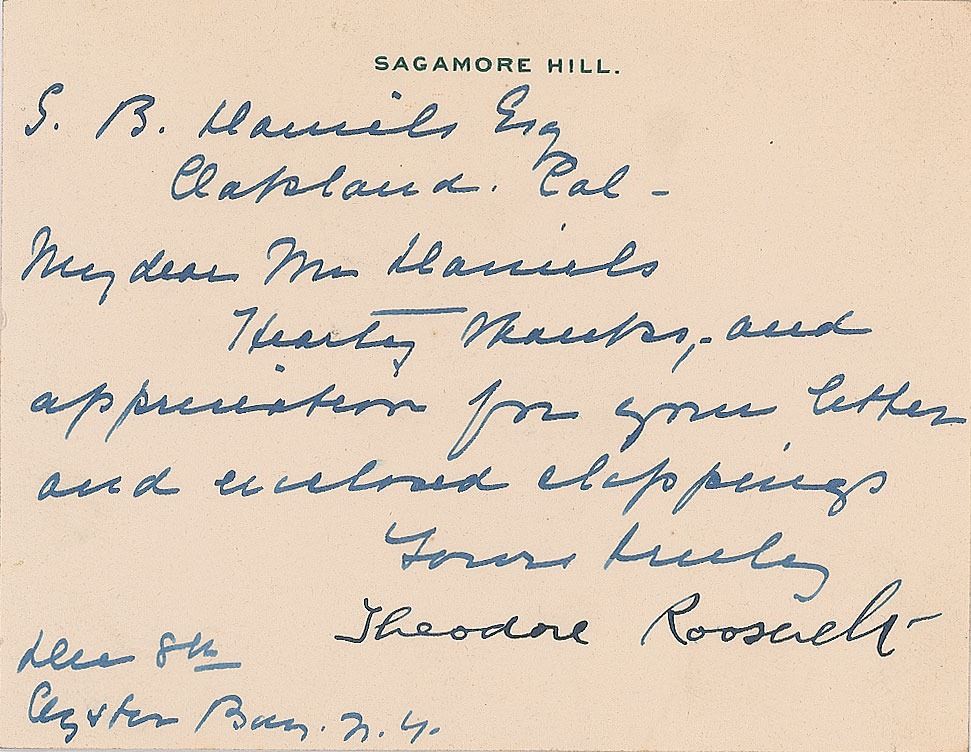 SAGAMORE HILL.
S. B. Daniels Esq
Oakland. Cal -
My dear Mr Daniels
Hearty thanks, and
appreciation for your letter
and enclosed clippings
Yours truly
Theodore Roosevelt
Dec 8th
Oyster Bay. N. Y.